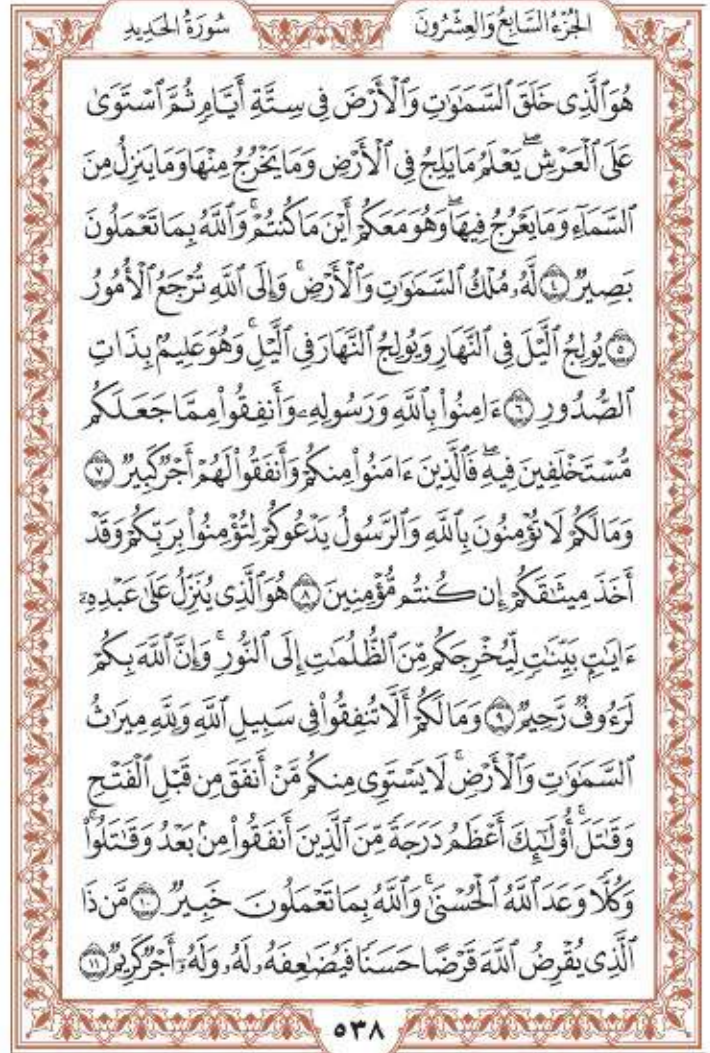 الجُزْءُ السَّابِعُ وَالعِشْرُونَ    سُورَةُ الحَدِيدِ
هُوَ ٱلَّذِى خَلَقَ ٱلسَّمَٰوَٰتِ وَٱلْأَرْضَ فِى سِتَّةِ أَيَّامٍ ثُمَّ ٱسْتَوَىٰ
عَلَى ٱلْعَرْشِ ۖ يَعْلَمُ مَا يَلِجُ فِى ٱلْأَرْضِ وَمَا يَخْرُجُ مِنْهَا وَمَا يَنزِلُ مِنَ
ٱلسَّمَآءِ وَمَا يَعْرُجُ فِيهَا ۖ وَهُوَ مَعَكُمْ أَيْنَ مَا كُنتُمْ ۚ وَٱللَّهُ بِمَا تَعْمَلُونَ
بَصِيرٌ ٤ لَّهُۥ مُلْكُ ٱلسَّمَٰوَٰتِ وَٱلْأَرْضِ ۚ وَإِلَى ٱللَّهِ تُرْجَعُ ٱلْأُمُورُ
٥ يُولِجُ ٱلَّيْلَ فِى ٱلنَّهَارِ وَيُولِجُ ٱلنَّهَارَ فِى ٱلَّيْلِ ۚ وَهُوَ عَلِيمٌۢ بِذَاتِ
ٱلصُّدُورِ ٦ ءَامِنُوا۟ بِٱللَّهِ وَرَسُولِهِۦ وَأَنفِقُوا۟ مِمَّا جَعَلَكُم
مُّسْتَخْلَفِينَ فِيهِ ۖ فَٱلَّذِينَ ءَامَنُوا۟ مِنكُمْ وَأَنفَقُوا۟ لَهُمْ أَجْرٌ كَبِيرٌ ٧
وَمَا لَكُمْ لَا تُؤْمِنُونَ بِٱللَّهِ ۙ وَٱلرَّسُولُ يَدْعُوكُمْ لِتُؤْمِنُوا۟ بِرَبِّكُمْ وَقَدْ
أَخَذَ مِيثَٰقَكُمْ إِن كُنتُم مُّؤْمِنِينَ ٨ هُوَ ٱلَّذِى يُنَزِّلُ عَلَىٰ عَبْدِهِۦٓ
ءَايَٰتٍۭ بَيِّنَٰتٍ لِّيُخْرِجَكُم مِّنَ ٱلظُّلُمَٰتِ إِلَى ٱلنُّورِ ۚ وَإِنَّ ٱللَّهَ بِكُمْ
لَرَءُوفٌ رَّحِيمٌ ٩ وَمَا لَكُمْ أَلَّا تُنفِقُوا۟ فِى سَبِيلِ ٱللَّهِ وَلِلَّهِ مِيرَٰثُ
ٱلسَّمَٰوَٰتِ وَٱلْأَرْضِ ۚ لَا يَسْتَوِى مِنكُم مَّنْ أَنفَقَ مِن قَبْلِ ٱلْفَتْحِ
وَقَٰتَلَ ۚ أُو۟لَٰٓئِكَ أَعْظَمُ دَرَجَةً مِّنَ ٱلَّذِينَ أَنفَقُوا۟ مِنۢ بَعْدُ وَقَٰتَلُوا۟ ۚ
وَكُلًّا وَعَدَ ٱللَّهُ ٱلْحُسْنَىٰ ۚ وَٱللَّهُ بِمَا تَعْمَلُونَ خَبِيرٌ ١٠ مَّن ذَا
ٱلَّذِى يُقْرِضُ ٱللَّهَ قَرْضًا حَسَنًا فَيُضَٰعِفَهُۥ لَهُۥ وَلَهُۥٓ أَجْرٌ كَرِيمٌ ١١
٥٣٨